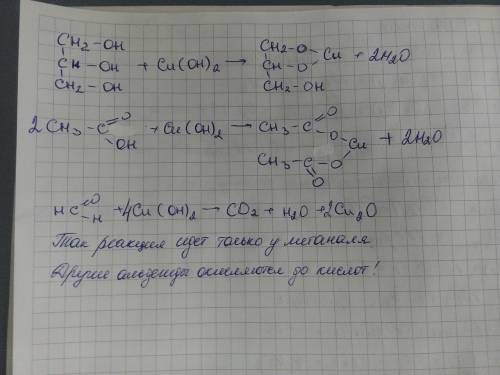 CH₂-OH CH₂-O
CH-OH + Cu(OH)₂ → CH-O Cu + 2H₂O
CH₂-OH CH₂-OH
2CH₃-C O OH + Cu(OH)₂ → CH₃-C O O Cu + 2H₂O
CH₃-C O O
HC O H + 4Cu(OH)₂ → CO₂ + H₂O + 2Cu₂O
Так реакция идет только у метаналя
Другие альдегиды окисляются до кислот!